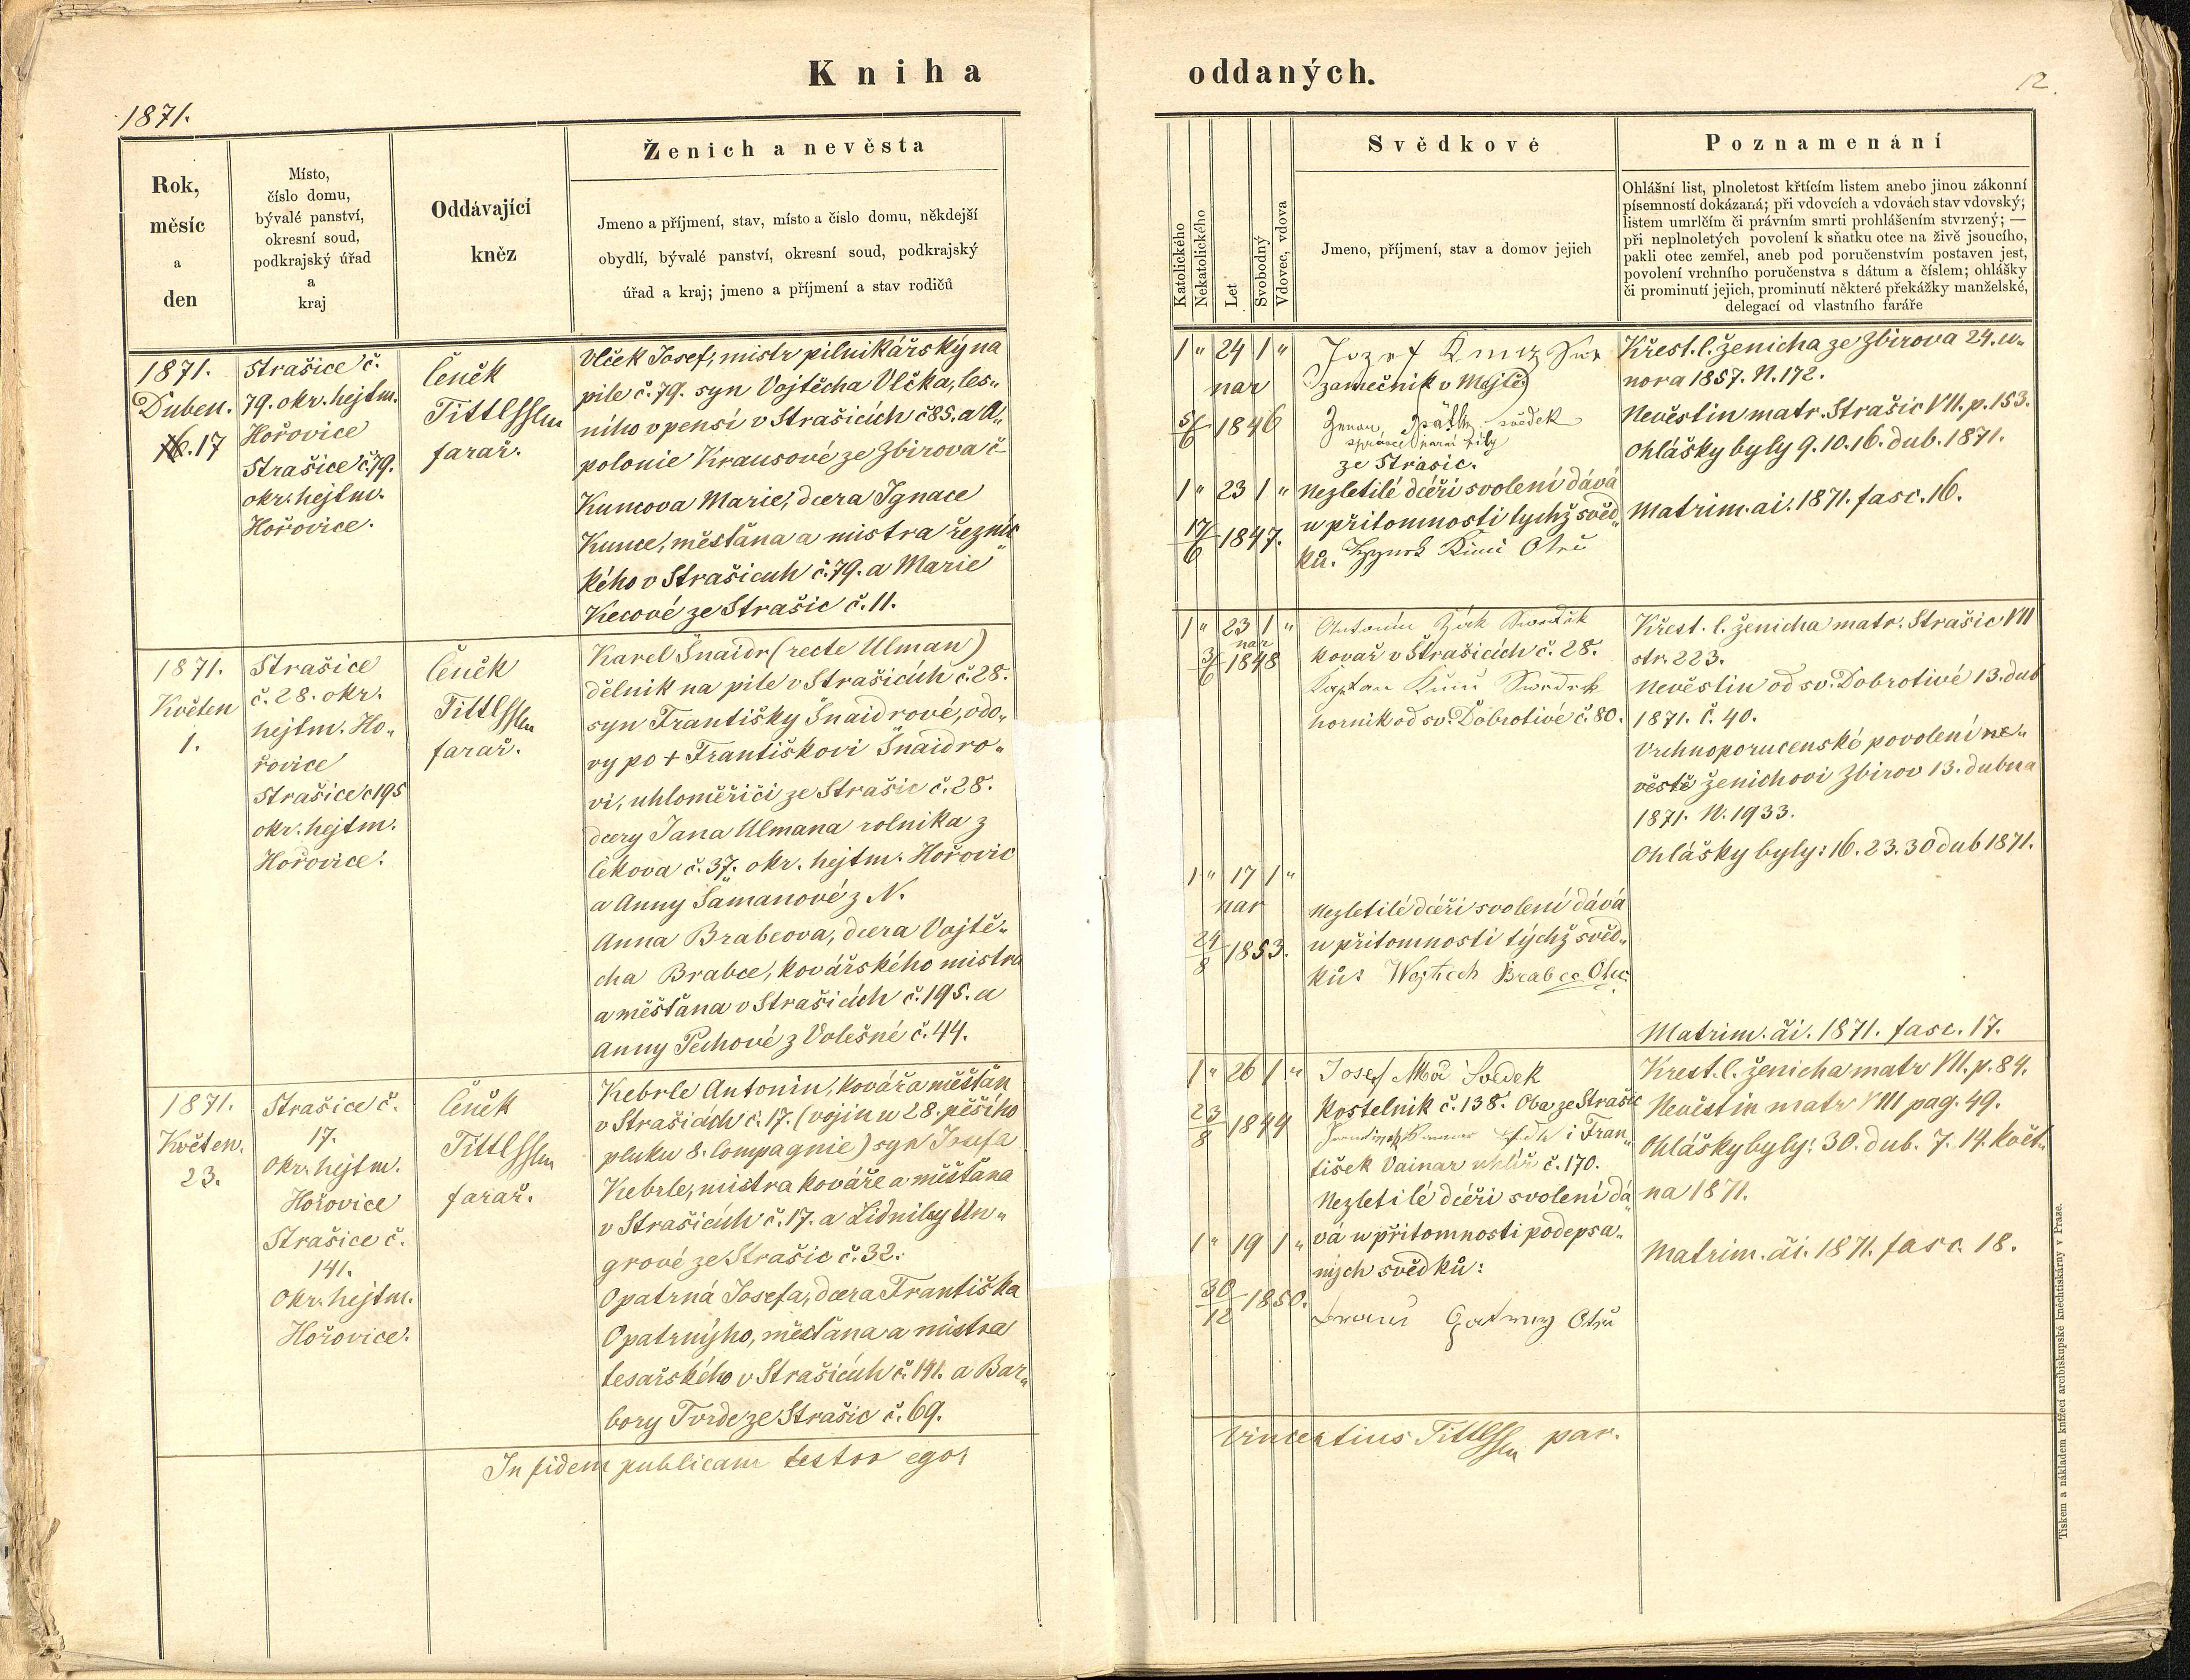 Kniha oddaných.
1871.
12.
Rok,
měsíc
a
den
Místo,
číslo domu,
bývalé panství,
okresní soud,
podkrajský úřad
a
kraj
Oddávající
kněz
Ženich a nevěsta
Jmeno a příjmení, stav, místo a číslo domu, někdejší
obydlí, bývalé panství, okresní soud, podkrajský
úřad a kraj; jmeno a příjmení a stav rodičů
Katolického
Nekatolického
Let
Svobodný
Vdovec, vdova
Svědkové
Jmeno, příjmení, stav a domov jejich
Poznamenání
Ohlášní list, plnoletost křtícím listem anebo jinou zákonní
písemností dokázaná; při vdovcích a vdovách stav vdovský;
listem umrlčím či právním smrti prohlášením stvrzený; —
při neplnoletých povolení k sňatku otce na živě jsoucího,
pakli otec zemřel, aneb pod poručenstvím postaven jest,
povolení vrchního poručenstva s dátum a číslem; ohlášky
či prominutí jejich, prominutí některé překážky manželské,
delegací od vlastního faráře
1871.
Duben.
17
Strašice č.
79. okr. hejtm.
Hořovice
Strašice č 79.
okr. hejtm.
Hořovice.
Čeněk
farař.
Vlček Josef, mistr pilnikářský na
pile č. 79. syn Vojtěcha Vlčka, les„
ního v pensí v Strašicích č 85. a A„
polonie Krausové ze Zbirova č
Kuncova Marie, dcera Ignace
Kunce, měšťana a mistra řeznic
kého v Strašicích č. 79. a Marie
Kecové ze Strašic č. 11.
1 " 24 1 "
nar
5/6 1846
Jozef
zamečník v
svědek
ze Strašic.
1 " 23 1 "
17/6 1847.
Nezletilé dceři svolení dává
u přitomnosti tychž svěd„
ků.
Křest. l. ženicha ze Zbirova 24. u„
nora 1857. N. 172.
Nevěstin matr. Strašic VII. p. 153.
Ohlášky byly 9. 10. 16. dub. 1871.
Matrim. ai. 1871. fasc. 16.
1871.
Květen
1.
Strašice
č. 28. okr.
hejtm. Ho„
řovice
Strašice č 195
okr. hejtm.
Hořovice.
Čeněk
farař.
Karel Šnaidr (recte Ulman)
dělnik na pile v Strašicích č. 28.
syn Františky Šnaidrové, vdo„
vy po + Františkovi Šnaidro„
vi, uhloměřiči ze Strašic č. 28.
dcery Jana Ulmana rolnika z
Čekova č. 37. okr. hejtm. Hořovic
a Anny Šamanové z N.
Anna Brabcova, dcera Vojtě„
cha Brabce, kovářského mistra
a měšťana v Strašicích č. 195. a
Anny Pechové z Volešné č. 44.
1 " 23 1 "
nar
3/6 1848
Antonín
kovař v Strašicích č. 28.
hornik od sv. Dobrotivé č. 80.
1 " 17 1 "
nar
24/8 1853.
Nezletilé dceři svolení dává
u přitomnosti týchž svěd„
ků: Wojtěch Brabec
Křest. l. ženicha matr. Strašic VII
str. 223.
Nevěstin od sv. Dobrotivé 13. dub
1871. č. 40.
Vrchnoporucenské povolení ne„
věstě ženichovi Zbirov 13. dubna
1871. N. 1933.
Ohlášky byly: 16. 23. 30 dub 1871.
Matrim. ai. 1871. fasc. 17.
1871.
Květen.
23.
Strašice č.
17.
Okr. hejtm.
Hořovice
Strašice č.
141.
Okr. hejtm.
Hořovice.
Čeněk
farař.
Kebrle Antonin, kovář a měšťan
v Strašicích č. 17. (vojin u 28. pěšího
pluku 8. Compagnie) syn Josefa
Kebrle, mistra kováře a měšťana
v Strašicích č. 17. a Lidmily Un„
grové ze Strašic č. 32.
Opatrná Josefa, dcera Františka
Opatrnýho, měšťana a mistra
tesařského v Strašicích č. 141. a Bar„
bory Tvrdé ze Strašic č. 69.
1 " 26 1 "
23/8 1844
Josef Svedek
kostelnik č. 138. Oba ze Strašic
i Fran„
tišek Vainar uhlíř č. 170.
1 " 19 1 "
30/12 1850.
Nezletilé dceři svolení dá„
vá u přitomnosti podepsa„
nych svědků:
Krest. l. ženicha matr VII. p. 84.
Nevěstin matr VIII pag. 49.
Ohlášky byly: 30. dub. 7. 14. květ„
na 1871.
Matrim. ai. 1871. fasc. 18.
In fidem publicam testor ego:
Vincentius par.
Tiskem a nákladem knížecí arcibiskupské kněhtiskárny v Praze.